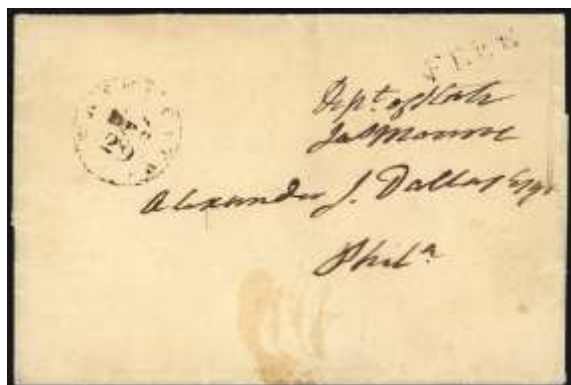 FREE
DEC
29
Dept. of State
Jas Monroe
Alexander J. Dallas Esqr
Phila